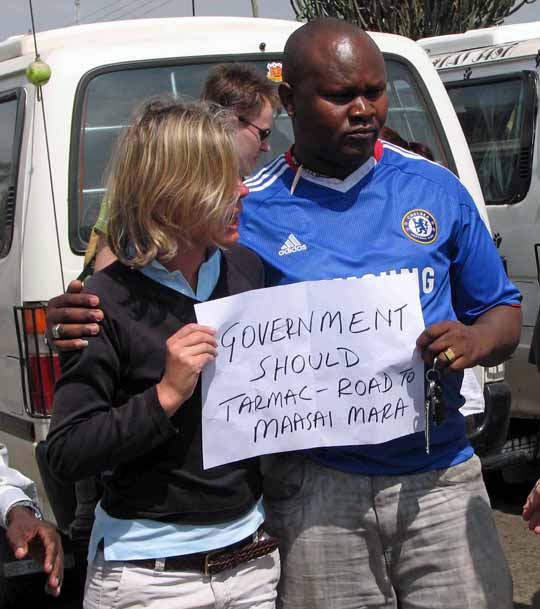 CHELSEA
adidas
SAMSUNG
GOVERNMENT
SHOULD
TARMAC - ROAD TO
MAASAI MARA